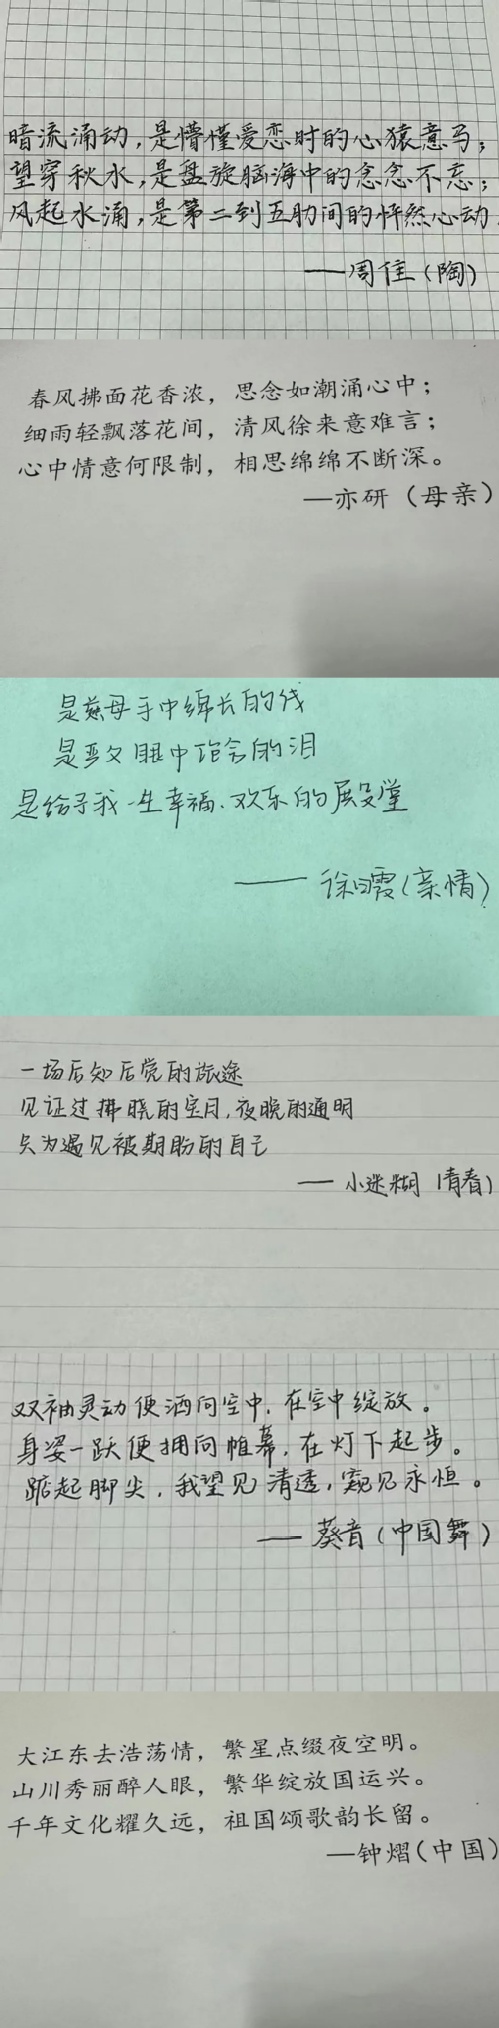 暗流涌动，是懵懂爱恋时的心猿意马；
望穿秋水，是盘旋脑海中的念念不忘；
风起水涌，是第二到五肋间的怦然心动
——周佳（陶）
春风拂面花香浓，思念如潮涌心中；
细雨轻飘落花间，清风徐来意难言；
心中情意何限制，相思绵绵不断深。
—亦研（母亲）
是慈母手中绵长的线
是严父眼中饱含的泪
是给予我一生幸福、欢乐的殿堂
——徐曰霞（亲情）
一场后知后觉的旅途
见证过拂晓的空月，夜晚的通明
只为遇见被期盼的自己
——小迷糊（青春）
双袖灵动便洒向空中，在空中绽放。
身姿一跃便拥向帷幕，在灯下起步。
踮起脚尖，我望见清透，窥见永恒。
——葵音（中国舞）
大江东去浩荡情，繁星点缀夜空明。
山川秀丽醉人眼，繁华绽放国运兴。
千年文化耀久远，祖国颂歌韵长留。
—钟熠（中国）